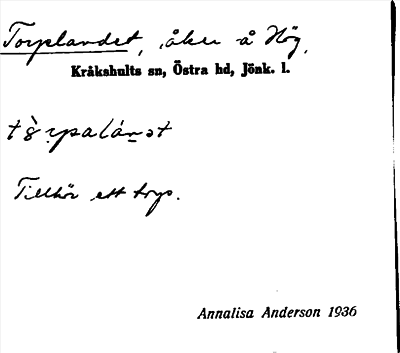 Torplandet, åker å Hög,
Kråkshults sn, Östra hd, Jönk. l.
Tillhör ett torp.
Annalisa Anderson 1936